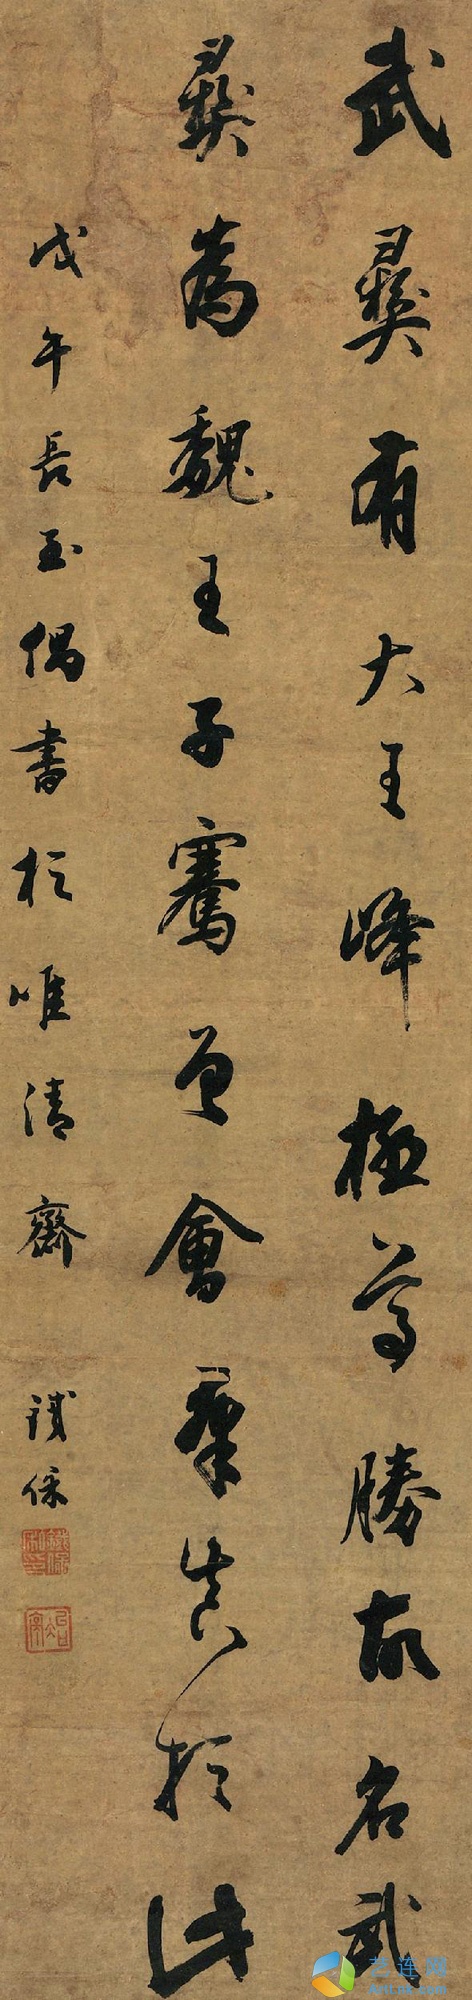 武彝有大王峰極尊勝故名武
彝為魏王子騫曾會羣真於此
戊午長至偶書於唯清齋
鐵保
鐵保私印
冶亭
艺连网
ArtLnk.com